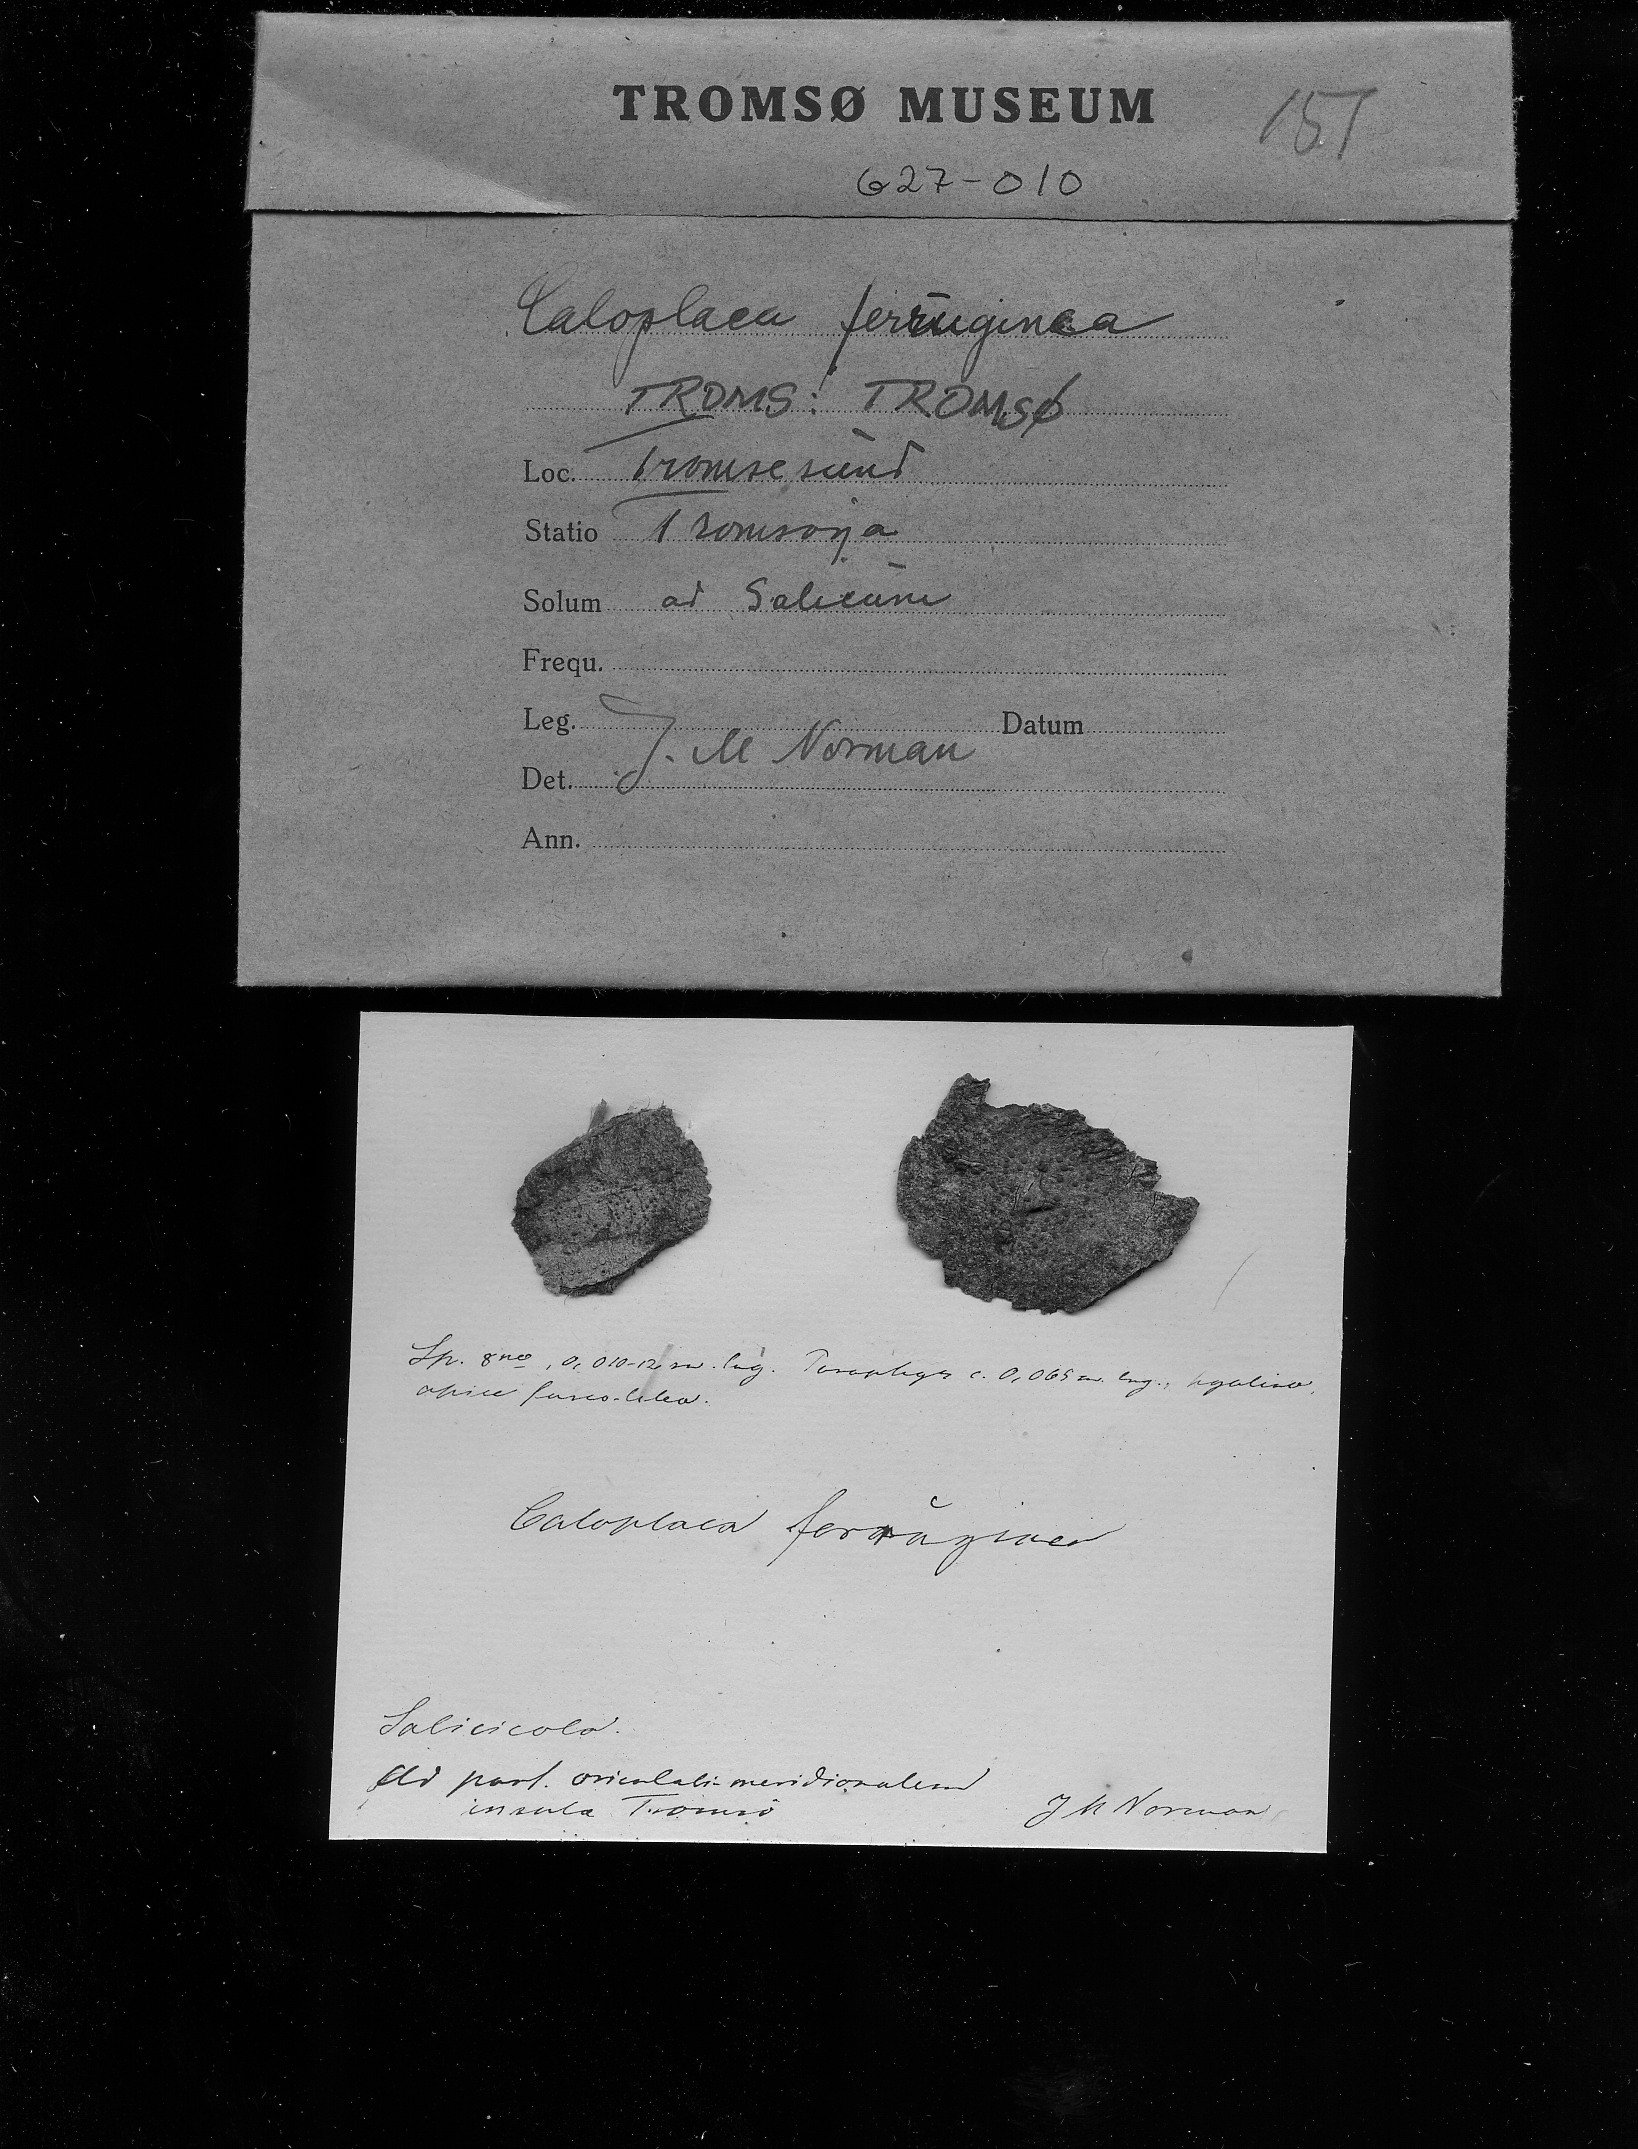 TROMSØ MUSEUM 151
627-010
Caloplaca ferruginea
TROMS: TROMSØ
Loc. Tromsesund
Statio Tromsøya
Solum ad Salicum
Frequ.
Leg. J. M Norman Datum
Det.
Ann.
Sp. 8næ, 0,010-12 m. lng. c. 0,065 m. lng., hyalina,
apice fusco-
Caloplaca ferruginea
Salicicola.
Ad part. orientali-meridionalem
insula Tromsö
J M Norman